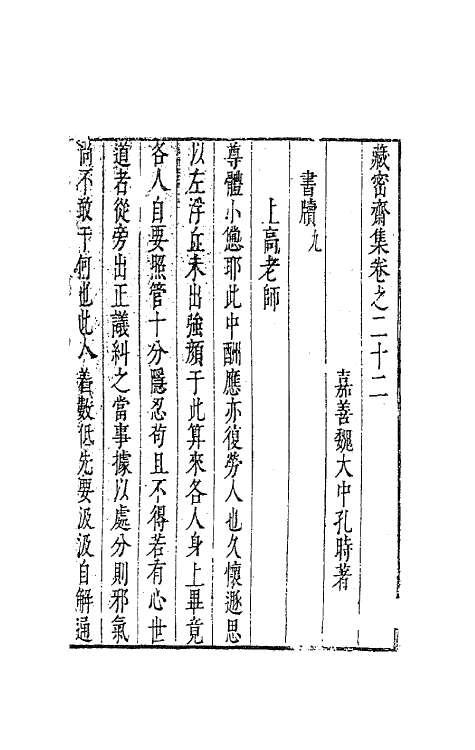 藏密齋集卷之二十二
嘉善魏大中孔時著
書牘九
上高老師
尊體小憊耶此中酬應亦復勞人也久懷遯思
以左浮丘未出強顏于此算來各人身上畢竟
各人自要照管十分隱忍苟且不得若有心世
道者從旁出正議糾之當事據以處分則邪氣
尚不敢干何也此人着數低先要汲汲自解通